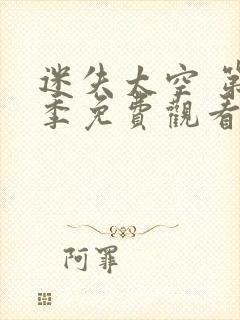 迷失太空 第
季免費觀看
阿罪